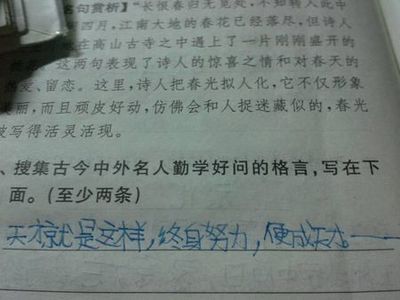 名句赏析】"长恨春归无觅处,不知转入此中
四月,江南大地的春花已经落尽,但诗人
在高山古寺之中遇上了一片刚刚盛开的
这两句表现了诗人的惊喜之情和对春天的
爱、留恋。这里,诗人把春光拟人化,它不仅形象
美丽,而且顽皮好动,仿佛会和人捉迷藏似的,春光
被写得活灵活现。
、搜集古今中外名人勤学好问的格言,写在下
面。(至少两条)
天才就是这样,终身努力,便成天才——